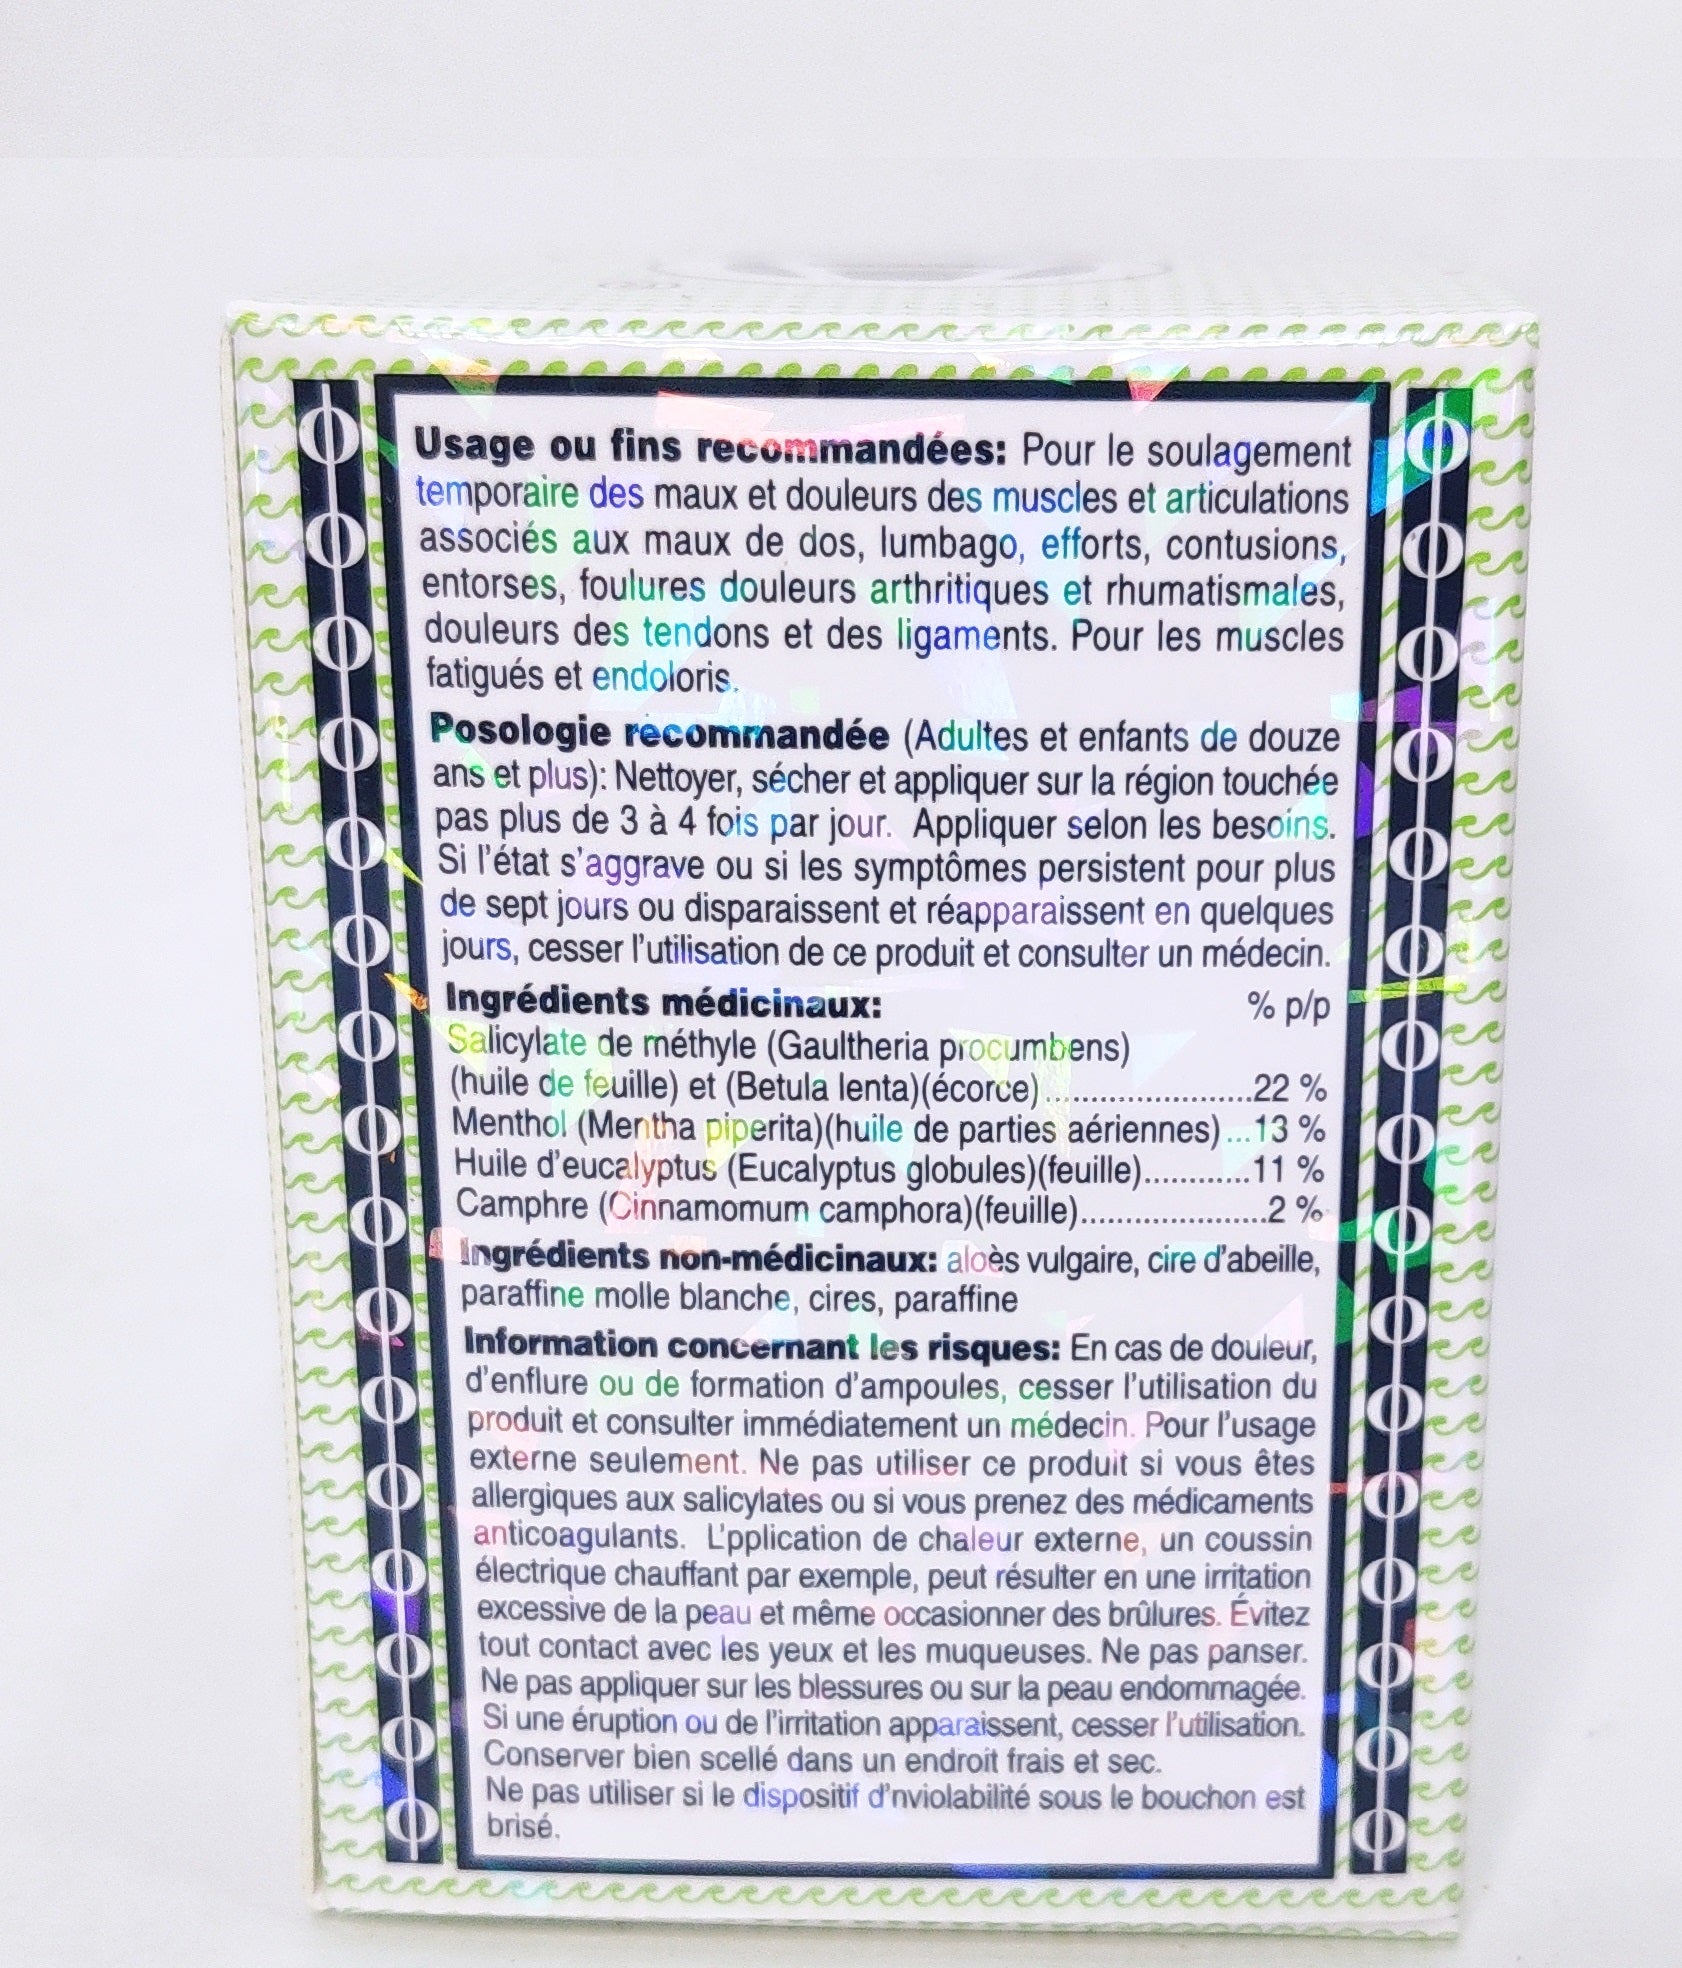 Usage ou fins recommandées: Pour le soulagement
temporaire des maux et douleurs des muscles et articulations
associés aux maux de dos, lumbago, efforts, contusions,
entorses, foulures douleurs arthritiques et rhumatismales,
douleurs des tendons et des ligaments. Pour les muscles
fatigués et endoloris.
Posologie recommandée (Adultes et enfants de douze
ans et plus): Nettoyer, sécher et appliquer sur la région touchée
pas plus de 3 à 4 fois par jour. Appliquer selon les besoins.
Si l'état s'aggrave ou si les symptômes persistent pour plus
de sept jours ou disparaissent et réapparaissent en quelques
jours, cesser l'utilisation de ce produit et consulter un médecin.
Ingrédients médicinaux: % p/p
Salicylate de méthyle (Gaultheria procumbens)
(huile de feuille) et (Betula lenta)(écorce).......................22 %
Menthol (Mentha piperita)(huile de parties aériennes)...13 %
Huile d'eucalyptus (Eucalyptus globules)(feuille)............11 %
Camphre (Cinnamomum camphora)(feuille).....................2 %
Ingrédients non-médicinaux: aloès vulgaire, cire d'abeille,
paraffine molle blanche, cires, paraffine
Information concernant les risques: En cas de douleur,
d'enflure ou de formation d'ampoules, cesser l'utilisation du
produit et consulter immédiatement un médecin. Pour l'usage
externe seulement. Ne pas utiliser ce produit si vous êtes
allergiques aux salicylates ou si vous prenez des médicaments
anticoagulants. L'pplication de chaleur externe, un coussin
électrique chauffant par exemple, peut résulter en une irritation
excessive de la peau et même occasionner des brûlures. Évitez
tout contact avec les yeux et les muqueuses. Ne pas panser.
Ne pas appliquer sur les blessures ou sur la peau endommagée.
Si une éruption ou de l'irritation apparaissent, cesser l'utilisation.
Conserver bien scellé dans un endroit frais et sec.
Ne pas utiliser si le dispositif d'nviolabilité sous le bouchon est
brisé.